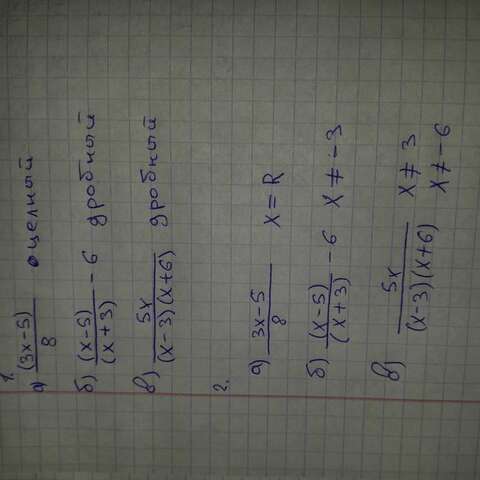 1.
а) (3x-5)/8 оцелный
б) (x-5)/(x+3) - 6 дробный
в) 5x/(x-3)(x+6) дробный
2.
а) 3x-5/8 x = R
б) (x-5)/(x+3) - 6 x ≠ -3
в) 5x/(x-3)(x+6) x ≠ 3
x ≠ -6